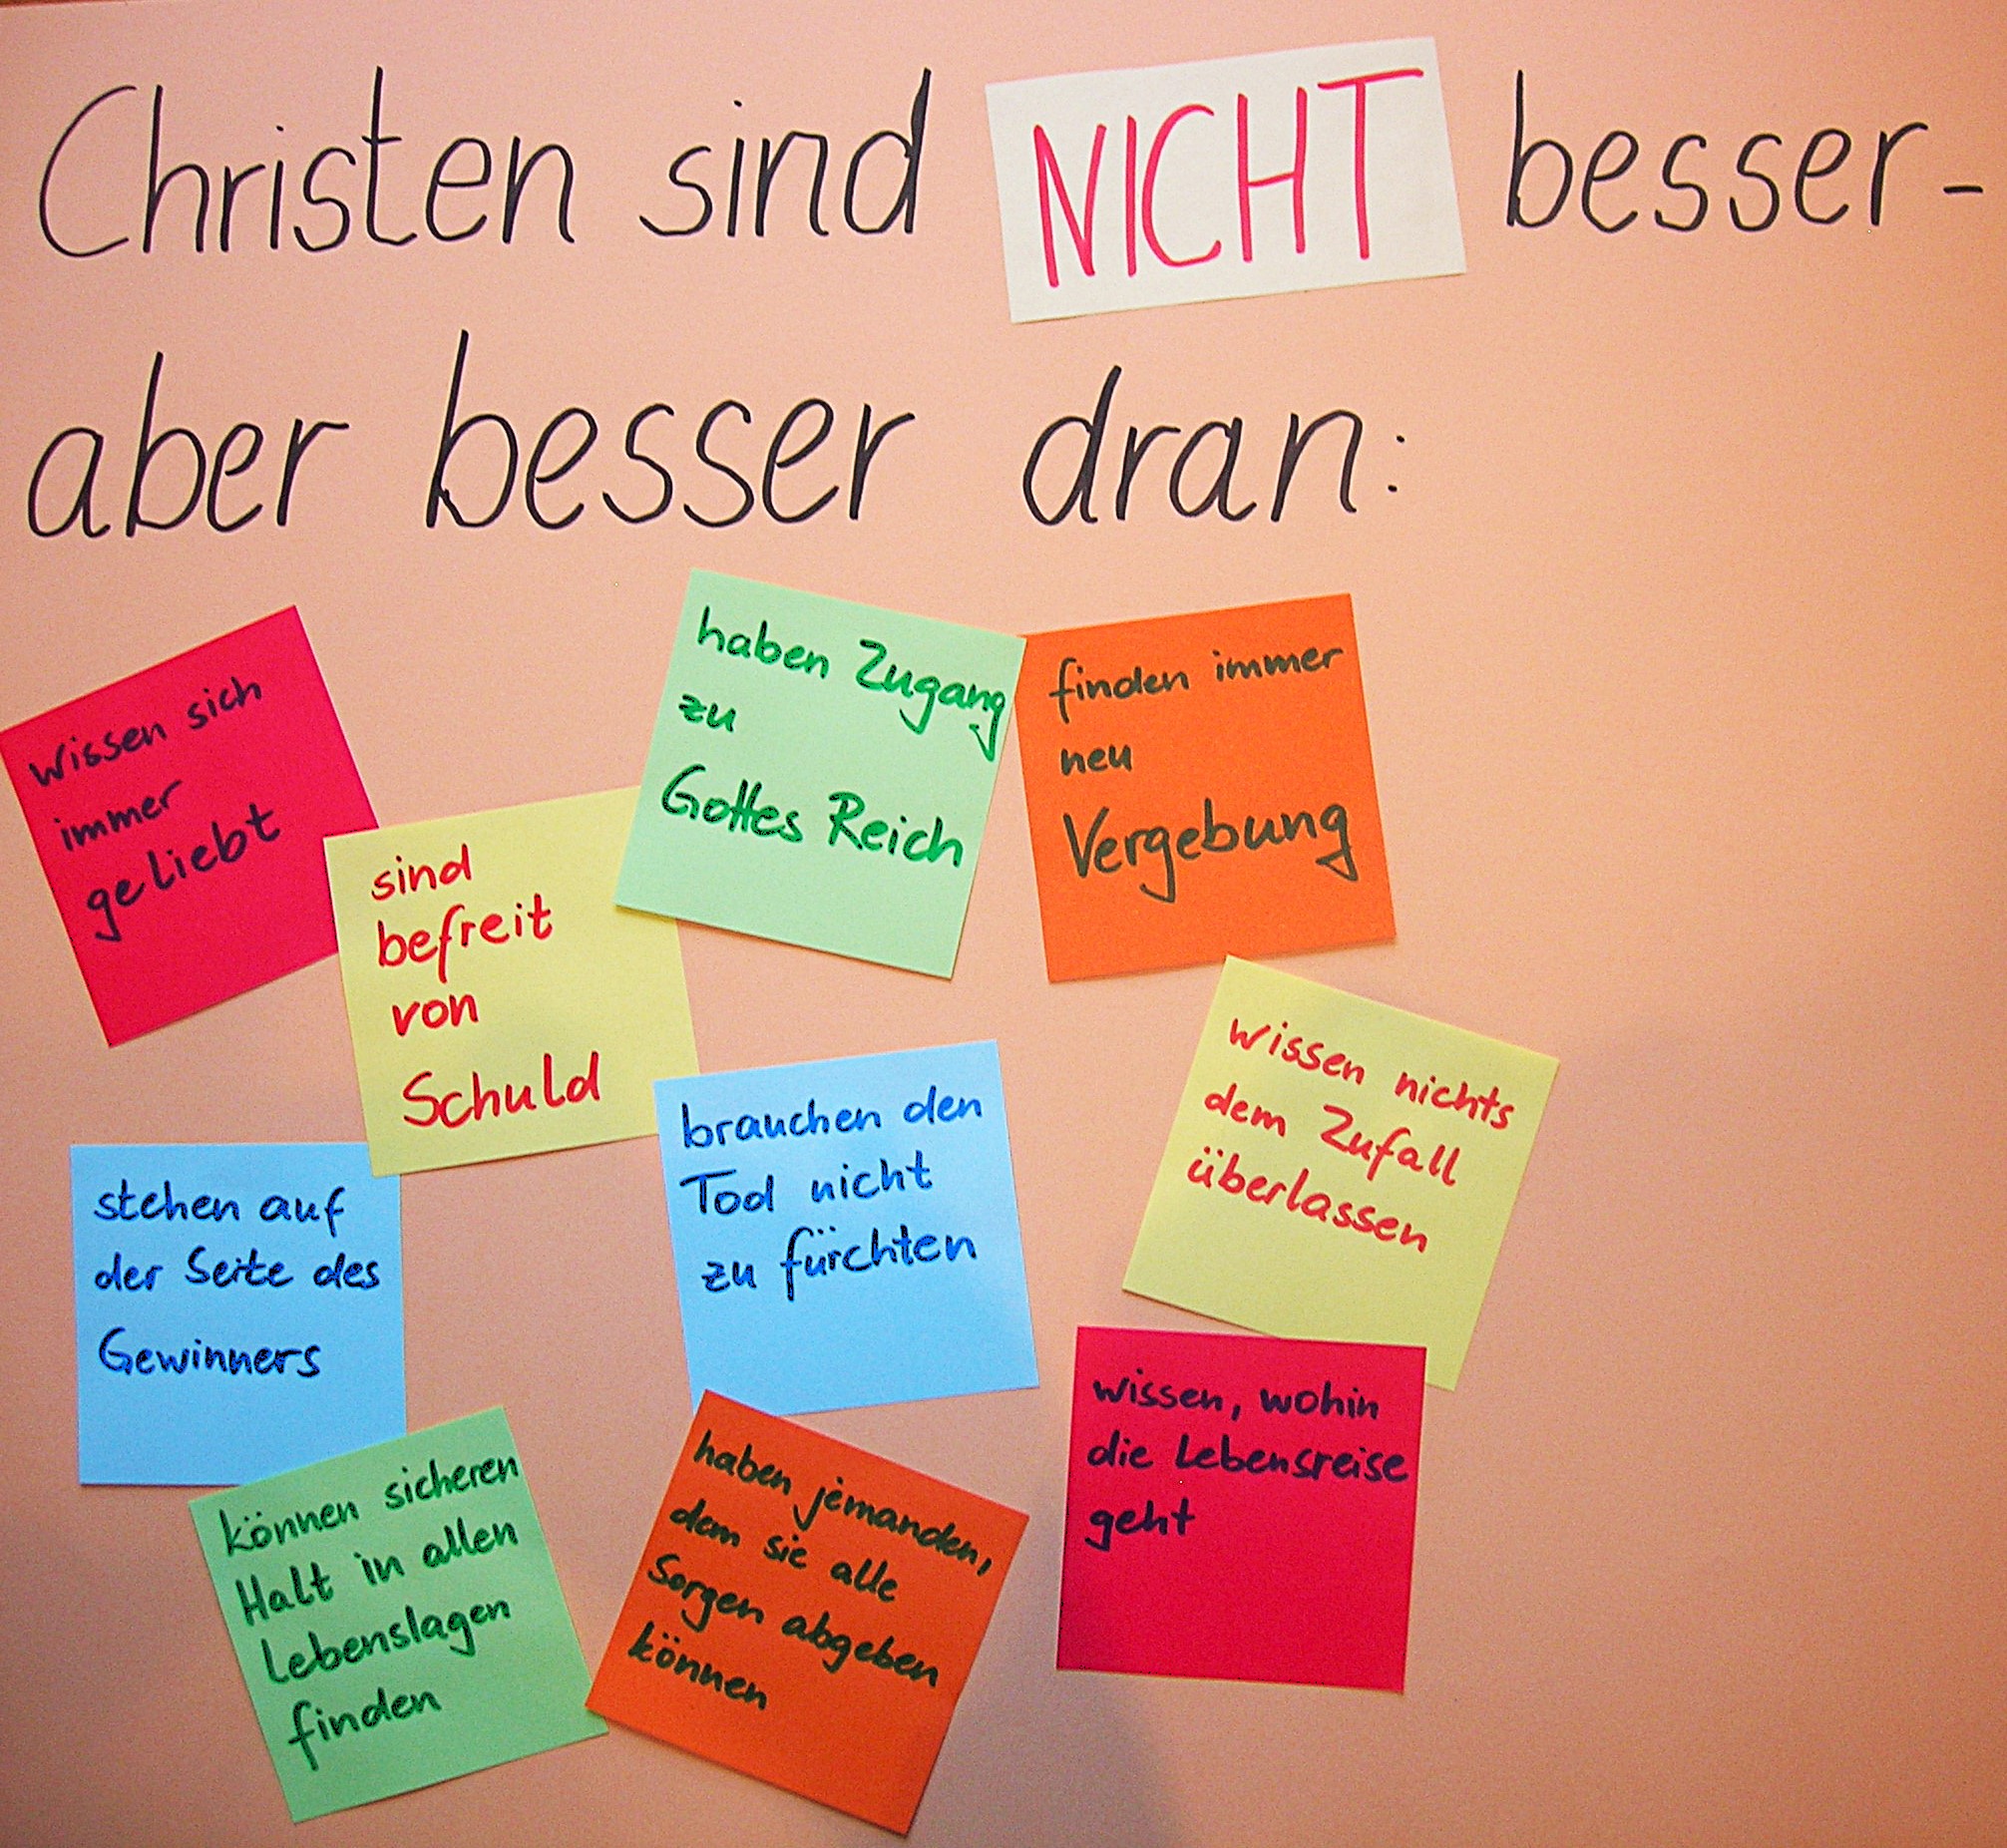 Christen sind NICHT besser-
aber besser dran:
wissen sich
immer
geliebt
sind
befreit
von
Schuld
haben Zugang
zu
Gottes Reich
finden immer
neu
Vergebung
stehen auf
der Seite des
Gewinners
brauchen den
Tod nicht
zu fürchten
wissen nichts
dem Zufall
überlassen
können sicheren
Halt in allen
Lebenslagen
finden
haben jemanden,
dem sie alle
Sorgen abgeben
können
wissen, wohin
die Lebensreise
geht